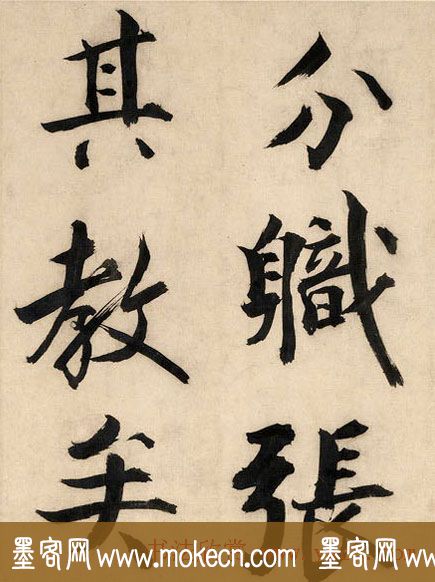 分職張
其教
墨客网 www.mokecn.com 墨客网
书法欣赏